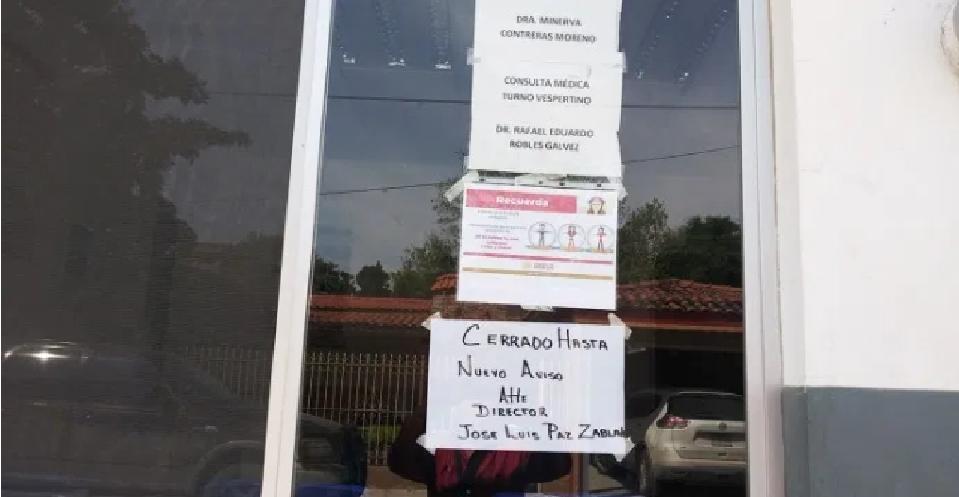 DRA. MINERVA
CONTRERAS MORENO
CONSULTA MÉDICA
TURNO VESPERTINO
DR. RAFAEL EDUARDO
ROBLES GALVEZ
Recuerda
CERRADO HASTA
NUEVO AVISO
ATTE
DIRECTOR
JOSE LUIS PAZ